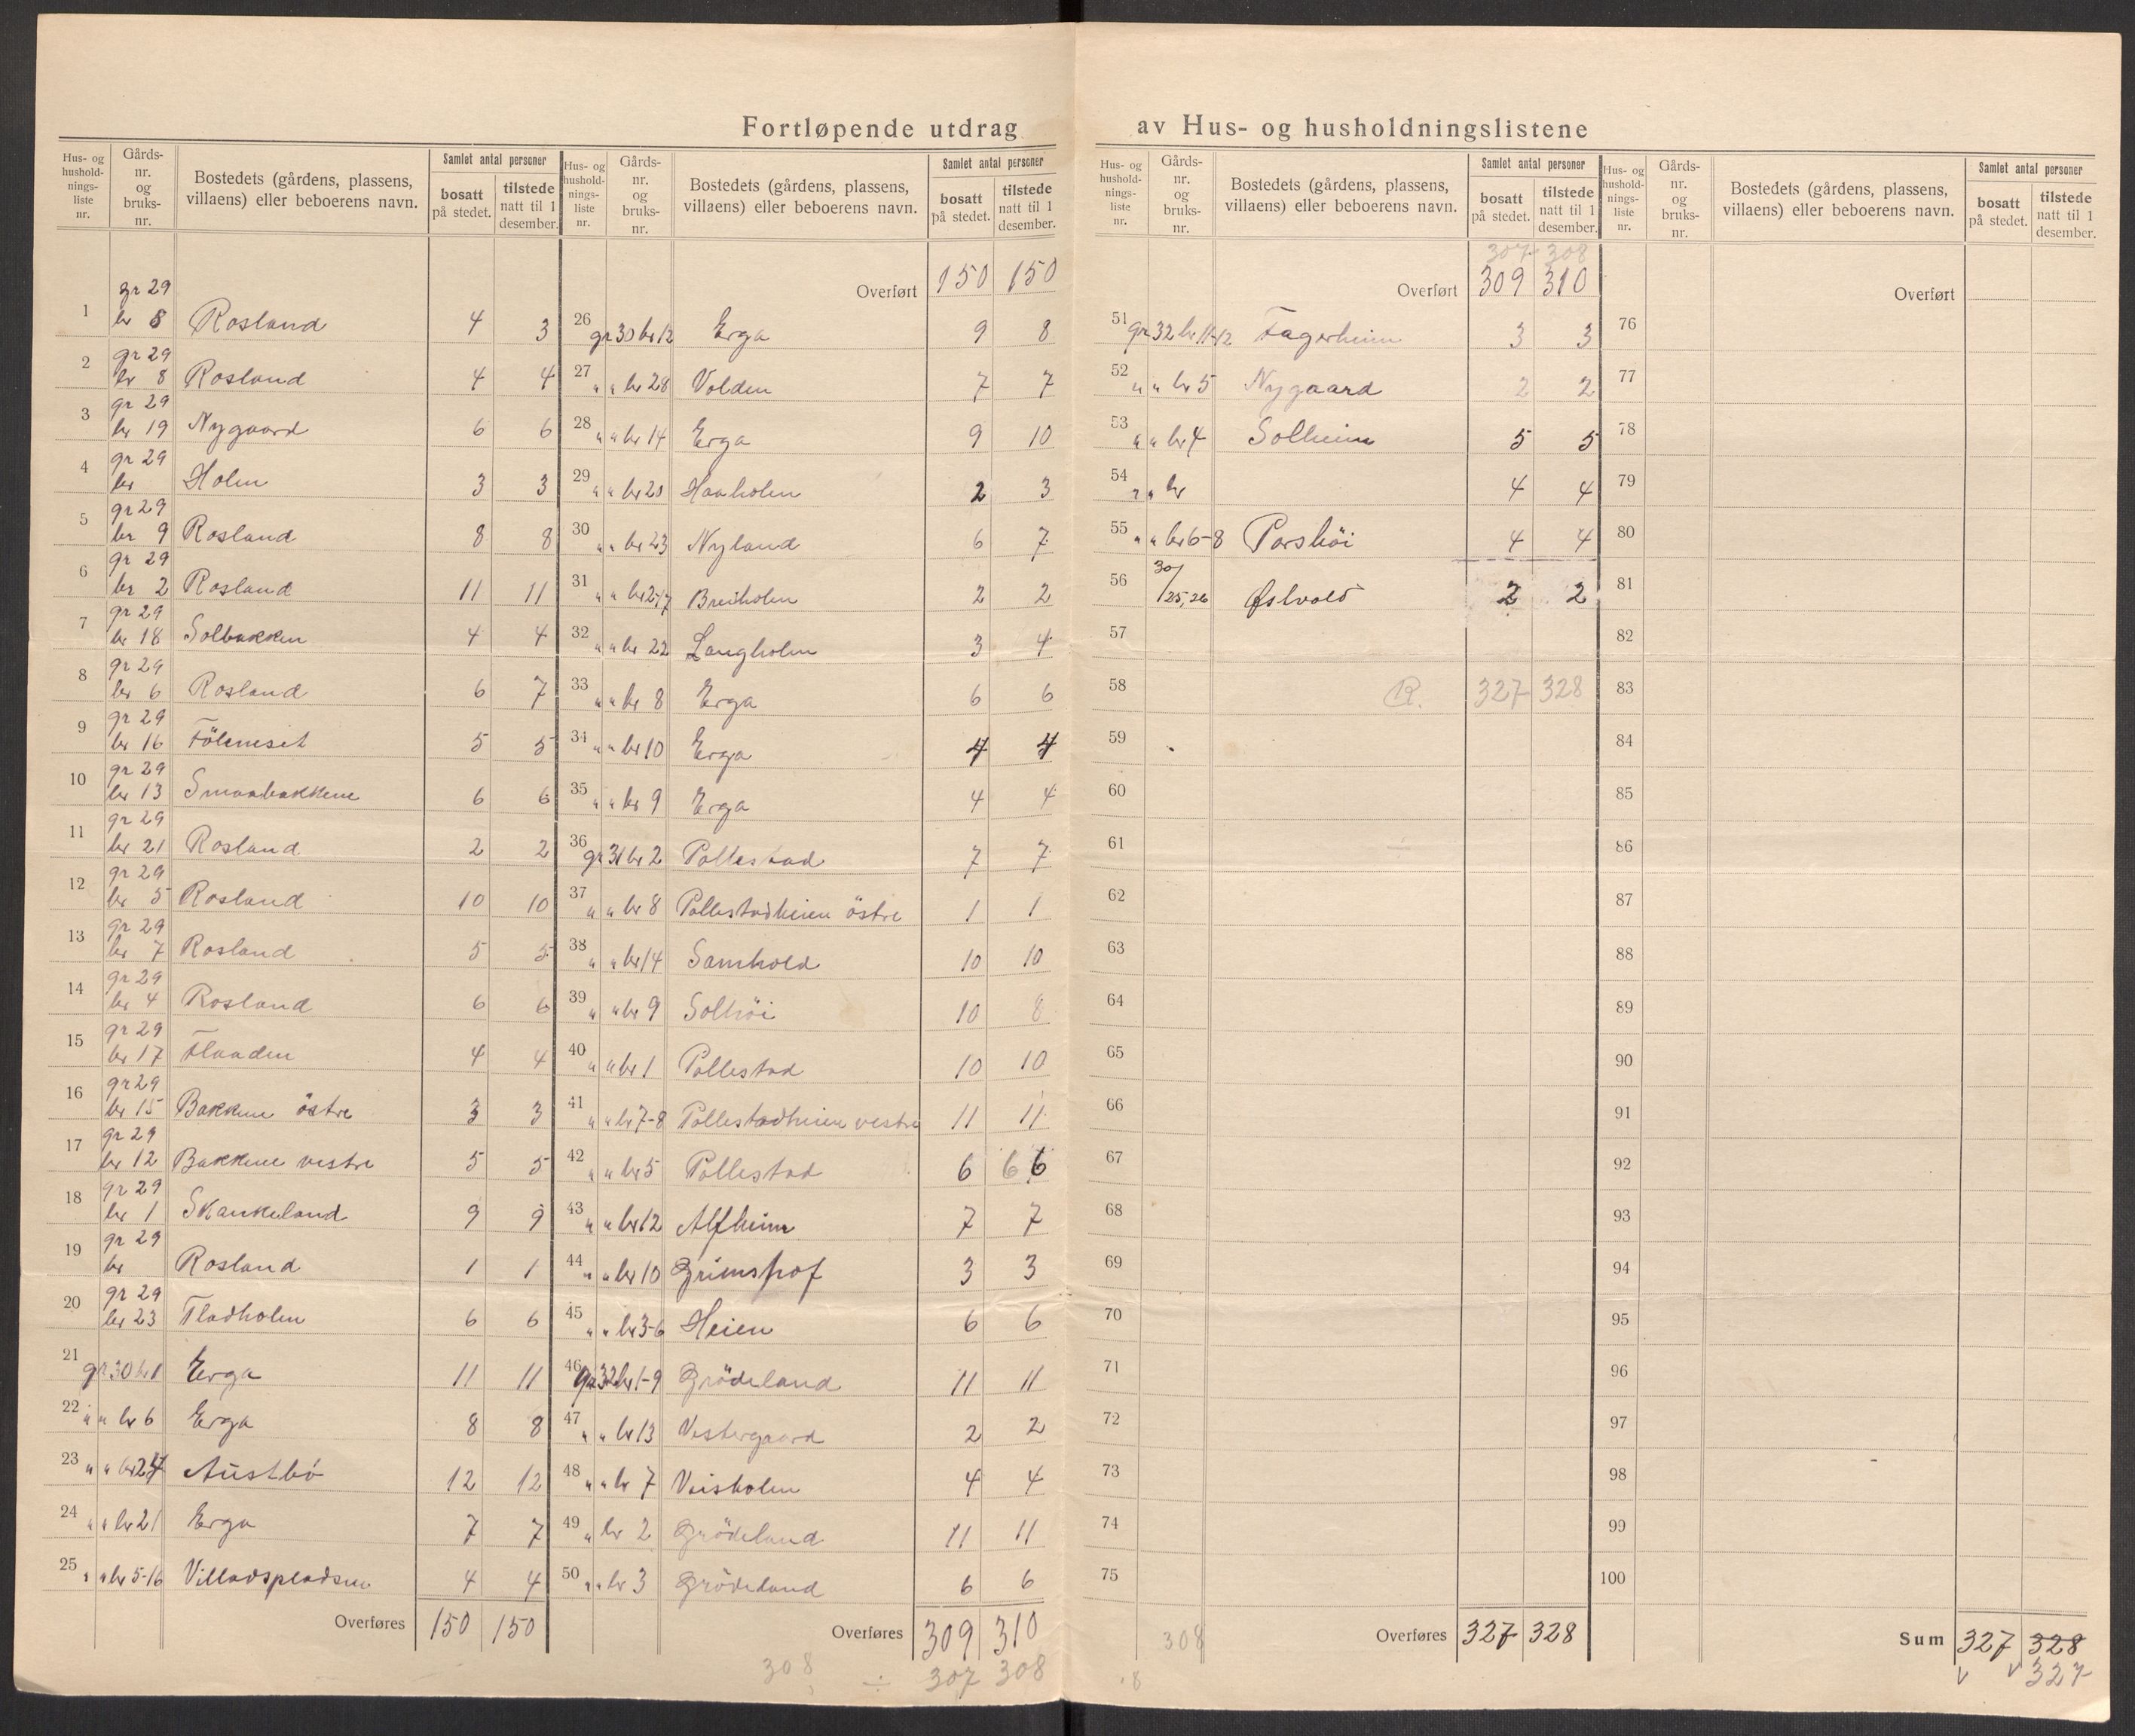 Fortløpende utdrag av Hus- og husholdningslistene
Hus- og husholdnings-liste nr. | Gårds-nr. og bruks-nr. | Bostedets (gårdens, plassens, villaens) eller beboerens navn. | Samlet antal personer | bosatt på stedet. | tilstede natt til 1 desember.
1 gr 29 br 8 Rosland 4 3
2 gr 29 br 8 Rosland 4 4
3 gr 29 br 19 Nygaard 6 6
4 gr 29 br Holm 3 3
5 gr 29 br 9 Rosland 8 8
6 gr 29 br 2 Rosland 11 11
7 gr 29 br 18 Solbakken 4 4
8 gr 29 br 6 Rosland 6 7
9 gr 29 br 16 5 5
10 gr 29 br 13 Smaabakkene 6 6
11 gr 29 br 21 Rosland 2 2
12 gr 29 br 5 Rosland 10 10
13 gr 29 br 7 Rosland 5 5
14 gr 29 br 4 Rosland 6 6
15 gr 29 br 17 Flaaden 4 4
16 gr 29 br 15 Bakkene östre 3 3
17 gr 29 br 12 Bakkene vestre 5 5
18 gr 29 br 1 Skankeland 9 9
19 gr 29 br Rosland 1 1
20 gr 29 br 23 Fladholm 6 6
21 gr 30 br 1 Erga 11 11
22 " " br 6 Erga 8 8
23 " " br 24 Austbö 12 12
24 " " br 21 Erga 7 7
25 " " br 5-16 Villadspladsen 4 4
Overføres 150 150
Hus- og husholdnings-liste nr. | Gårds-nr. og bruks-nr. | Bostedets (gårdens, plassens, villaens) eller beboerens navn. | Samlet antal personer | bosatt på stedet. | tilstede natt til 1 desember.
Overført 150 150
26 gr 30 br 12 Erga 9 8
27 " " br 28 Volden 7 7
28 " " br 14 Erga 9 10
29 " " br 20 Haaholm 2 3
30 " " br 23 Nyland 6 7
31 " " br 2-17 Breiholm 2 2
32 " " br 22 Langholm 3 4
33 " " br 8 Erga 6 6
34 " " br 10 Erga 4 4
35 " " br 9 Erga 4 4
36 gr 31 br 2 Pollestad 7 7
37 " " br 8 Pollestadheien östre 1 1
38 " " br 14 Samhold 10 10
39 " " br 9 Solhöi 10 8
40 " " br 1 Pollestad 10 10
41 " " br 7-8 Pollestadheien vestre 11 11
42 " " br 5 Pollestad 6 6 6
43 " " br 12 Alfheim 7 7
44 " " br 10 Grimshof 3 3
45 " " br 3-6 Heien 6 6
46 gr 32 br 1-9 Grödeland 11 11
47 " " br 13 Vestergaard 2 2
48 " " br 7 Veisholm 4 4
49 " br 2 Grödeland 11 11
50 " " br 3 Grödeland 6 6
Overføres 309 310
308 ÷ 307 308
Hus- og husholdnings-liste nr. | Gårds-nr. og bruks-nr. | Bostedets (gårdens, plassens, villaens) eller beboerens navn. | Samlet antal personer | bosatt på stedet. | tilstede natt til 1 desember.
307 308
Overført 309 310
51 gr 32 br 11-12 Fagerheim 3 3
52 " " br 5 Nygaard 2 2
53 " " br 4 Solheim 5 5
54 " " br 4 4
55 " " br 6-8 Porshöi 4 4
56 30/25,26 Østvold 2 2
57
58 R. 327 328
59
60
61
62
63
64
65
66
67
68
69
70
71
72
73
74
75
308 Overføres 327 328
8
Hus- og husholdnings-liste nr. | Gårds-nr. og bruks-nr. | Bostedets (gårdens, plassens, villaens) eller beboerens navn. | Samlet antal personer | bosatt på stedet. | tilstede natt til 1 desember.
Overført
76
77
78
79
80
81
82
83
84
85
86
87
88
89
90
91
92
93
94
95
96
97
98
99
100
Sum 327 328
v v 327